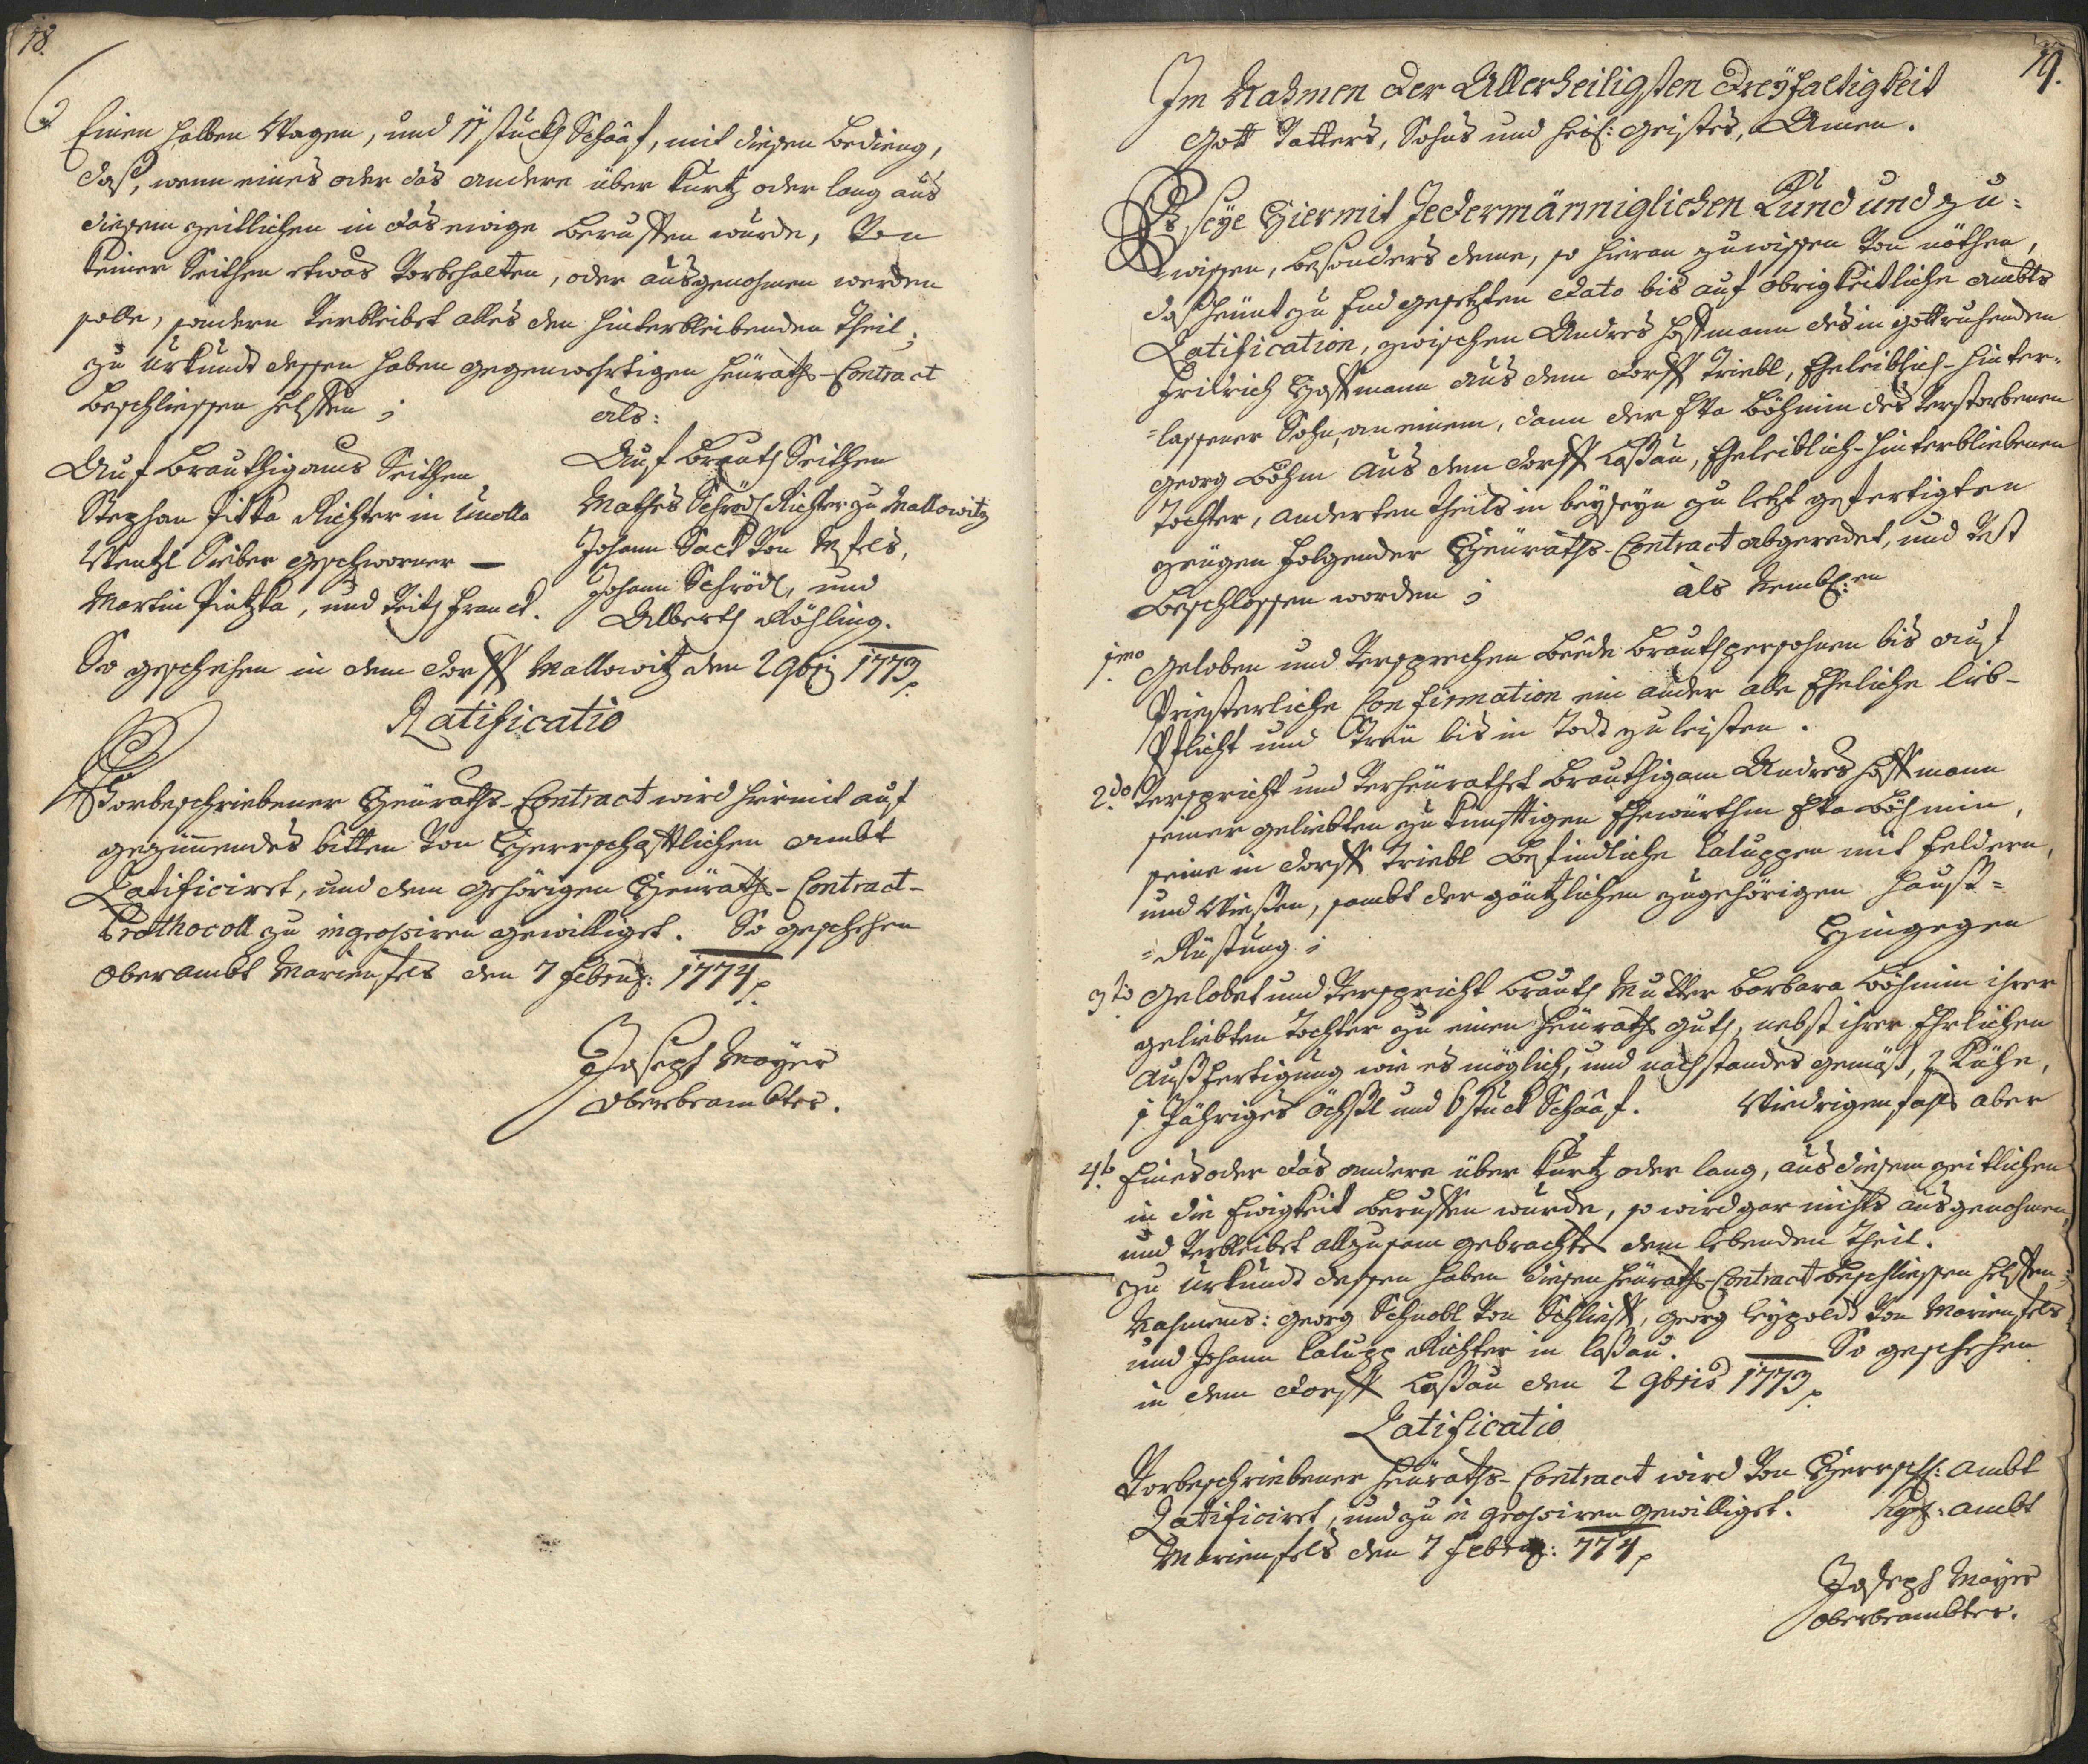 78.
Einen halben Wagen, und 11 stuckh Schaaf, mit diesen bedieng,
daß, wenn eines oder das andere über kurtz oder lang aus
diesem zeitlichen in das ewige beruffen wurde, von
keiner Seithen etwas vorbehalten, oder ausgenohmen werden
solle, sondern verbleibet alles den hinterbleibenden Theil;
zu Urkundt dessen haben gegenwertigen Heüraths-Contract
beschliessen helffen; als:
Auf Brauthigams Seithen
Stephan Pitka Richter in Unolla
Wentzl Sieber geschworner —
Martin Pietzka, und Veith Franck.
Auf Brauth Seithen
Mathes Schrödl Richter zu Mallowitz
Johann Sack von M:fels,
Johann Schrödl, und
Alberth Röhling.
So geschehen in dem Dorff Mallowitz den 2 9bri 1773
Ratificatio
Vorbeschriebener Heüraths-Contract wird hiermit auf
geziemendes bitten von Herrschafftlichen ambt
Ratificiret, und dem gehörigen Heüraths-Contract-
Prothocoll zu ingrossiren gewilliget. So geschehen
Oberambt Marienfels den 7 Febru: 1774
Joseph Mayer
Oberbeambter.
79.
Im Nahmen der Allerheiligsten Dreyfaltigkeit
Gott Vatters, Sohns und heil: Geistes, Amen.
Es seye Hiermit Jedermänniglichen Kund und zu-
wissen, besonders deme, so hieran zuwissen von nöthen,
daß heünt zu End gesetzten Dato bis auf obrigkeitliche ambts
Ratification, zwischen Andres Hoffmann des in gott ruhenden
Fridrich Hoffmann aus dem Dorff Triebl, Eheleiblich-hinter-
-lassener Sohn, an einem, dann der Eva Böhmin des verstorbenen
Georg Böhm aus dem Dorff Loßau, Eheleiblich-hinterbliebenen
Tochter, anderten Theils in beyseyn zu letzt gefertigten
Zeügen folgender Heüraths-Contract abgeredet, und vest
beschlossen worden; als Nembl:en
1mo Geloben und versprechen beede Brauthpersohnen bis auf
Priesterliche Confirmation ein ander alle Eheliche lieb-
Pflicht und Treü bis in Todt zu leisten.
2do Verspricht und verheürathet Brauthigam Andres Hoffmann
seiner geliebten zu kunfftigen Ehewürthin Eva Böhmin,
seine in Dorff Triebl befindliche Caluppen mit Feldern,
und Wießen, sambt der gäntzlichen zugehörigen Hauß-
-Rüstung; Hingegen
3tio Gelobet und verspricht Brauth Mutter Barbara Böhmin ihrer
geliebten Tochter zu einen Heürath guth, nebst ihrer Ehrlichen
Außfertigung wie es möglich, und nach standes gemäß, 2 Kühe,
1 Jähriges Öchßl und 6 stuck Schaaf. Wiedrigenfahls aber
4to Eines oder das andere über kurtz oder lang, aus diesem zeitlichen
in die Ewigkeit beruffen wurde, so wird gar nichts ausgenohmen,
und verbleibet all zusam gebrachte dem lebenden Theil.
zu Urkundt dessen haben diesen Heüraths-Contract beschliessen helffen,
Nahmens: Georg Schnobl von Schlieff, Georg Leypoldt von Marienfels
und Johann Calupp Richter in Loßau. So geschehen
in dem Dorff Loßau den 2 9bris 1773
Ratificatio
Vorbeschriebener Heüraths-Contract wird von Herrschl: ambt
Ratificiret, und zu in grossiren gewilliget. ambt
Marienfels den 7 Febru: 774
Joseph Mayer
Oberbeambter.